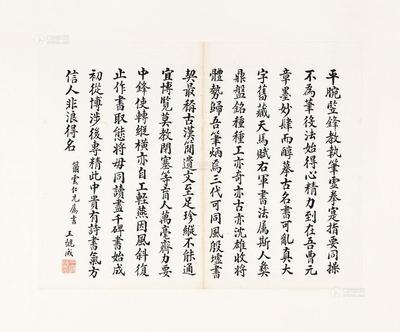 平腕豎鋒教執筆靈拳定指要同操
不為筆役法始得心精力到在吾曹元
章墨妙肆而醇摹古名書可亂真大
字舊藏天馬賦右軍書法屬斯人彝
鼎盤銘種種工亦奇亦古亦沈雄收將
體勢歸吾筆炳焉三代可同風殷墟書
契最稱古漢簡遺文至足珍縱不能通
宜博覽莫教閉塞等盲人萬毫齊力要
中鋒使轉縱橫亦自工輕燕因風斜復
止作書取態將毋同讀盡千碑書始成
初從博涉後專精此中貴有詩書氣方
信人非浪得名
蕭雲仁兄屬書 王